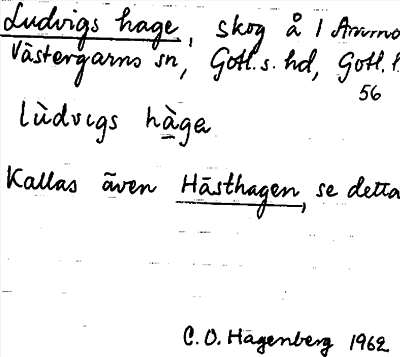 Ludvigs hage, skog å 1 Ammo
Västergarns sn, Gotl. s. hd, Gotl. l.
56
lùdvıgs hàge
Kallas även Hästhagen, se detta
C. O. Hagenberg 1962